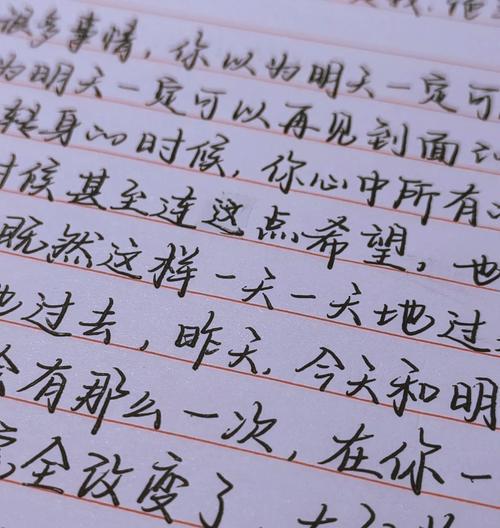 很多事情，你以为明天一定可
为明天一定可以再见到面
转身的时候，你心中所有
时候甚至连这点希望，也
既然这样一天一天地过
地过去，昨天，今天和明
会有那么一次，在你一
完全改变了